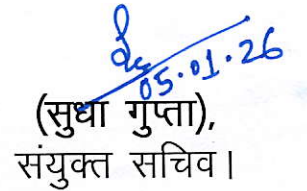 05.01.26
(सुधा गुप्ता),
संयुक्त सचिव।